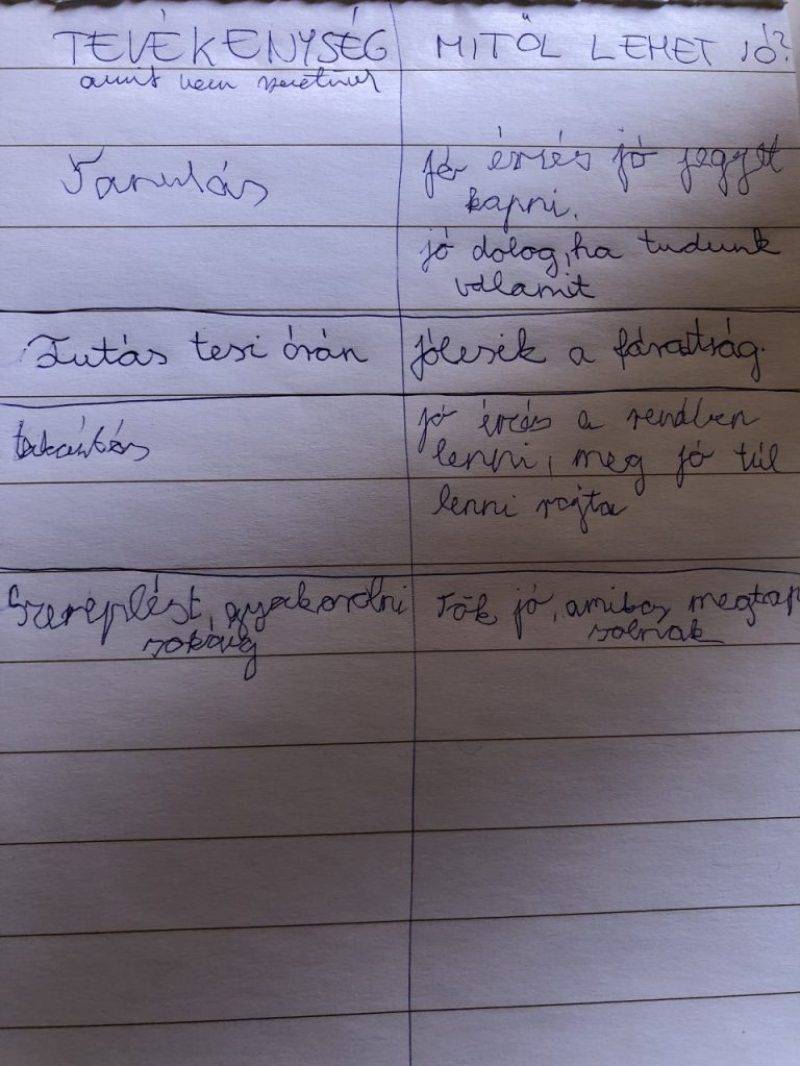 TEVÉKENYSÉG MITŐL LEHET JÓ?
amit nem
Tanulás jó érzés jó jegyet
kapni.
jó dolog, ha tudunk
valamit
Futás tesi órán jólesik a fáradtság.
takarítás jó érzés a rendben
lenni, meg jó túl
lenni rajta
Szereplést, gyakorolni Tök jó, amikor megtap
sokáig solnak